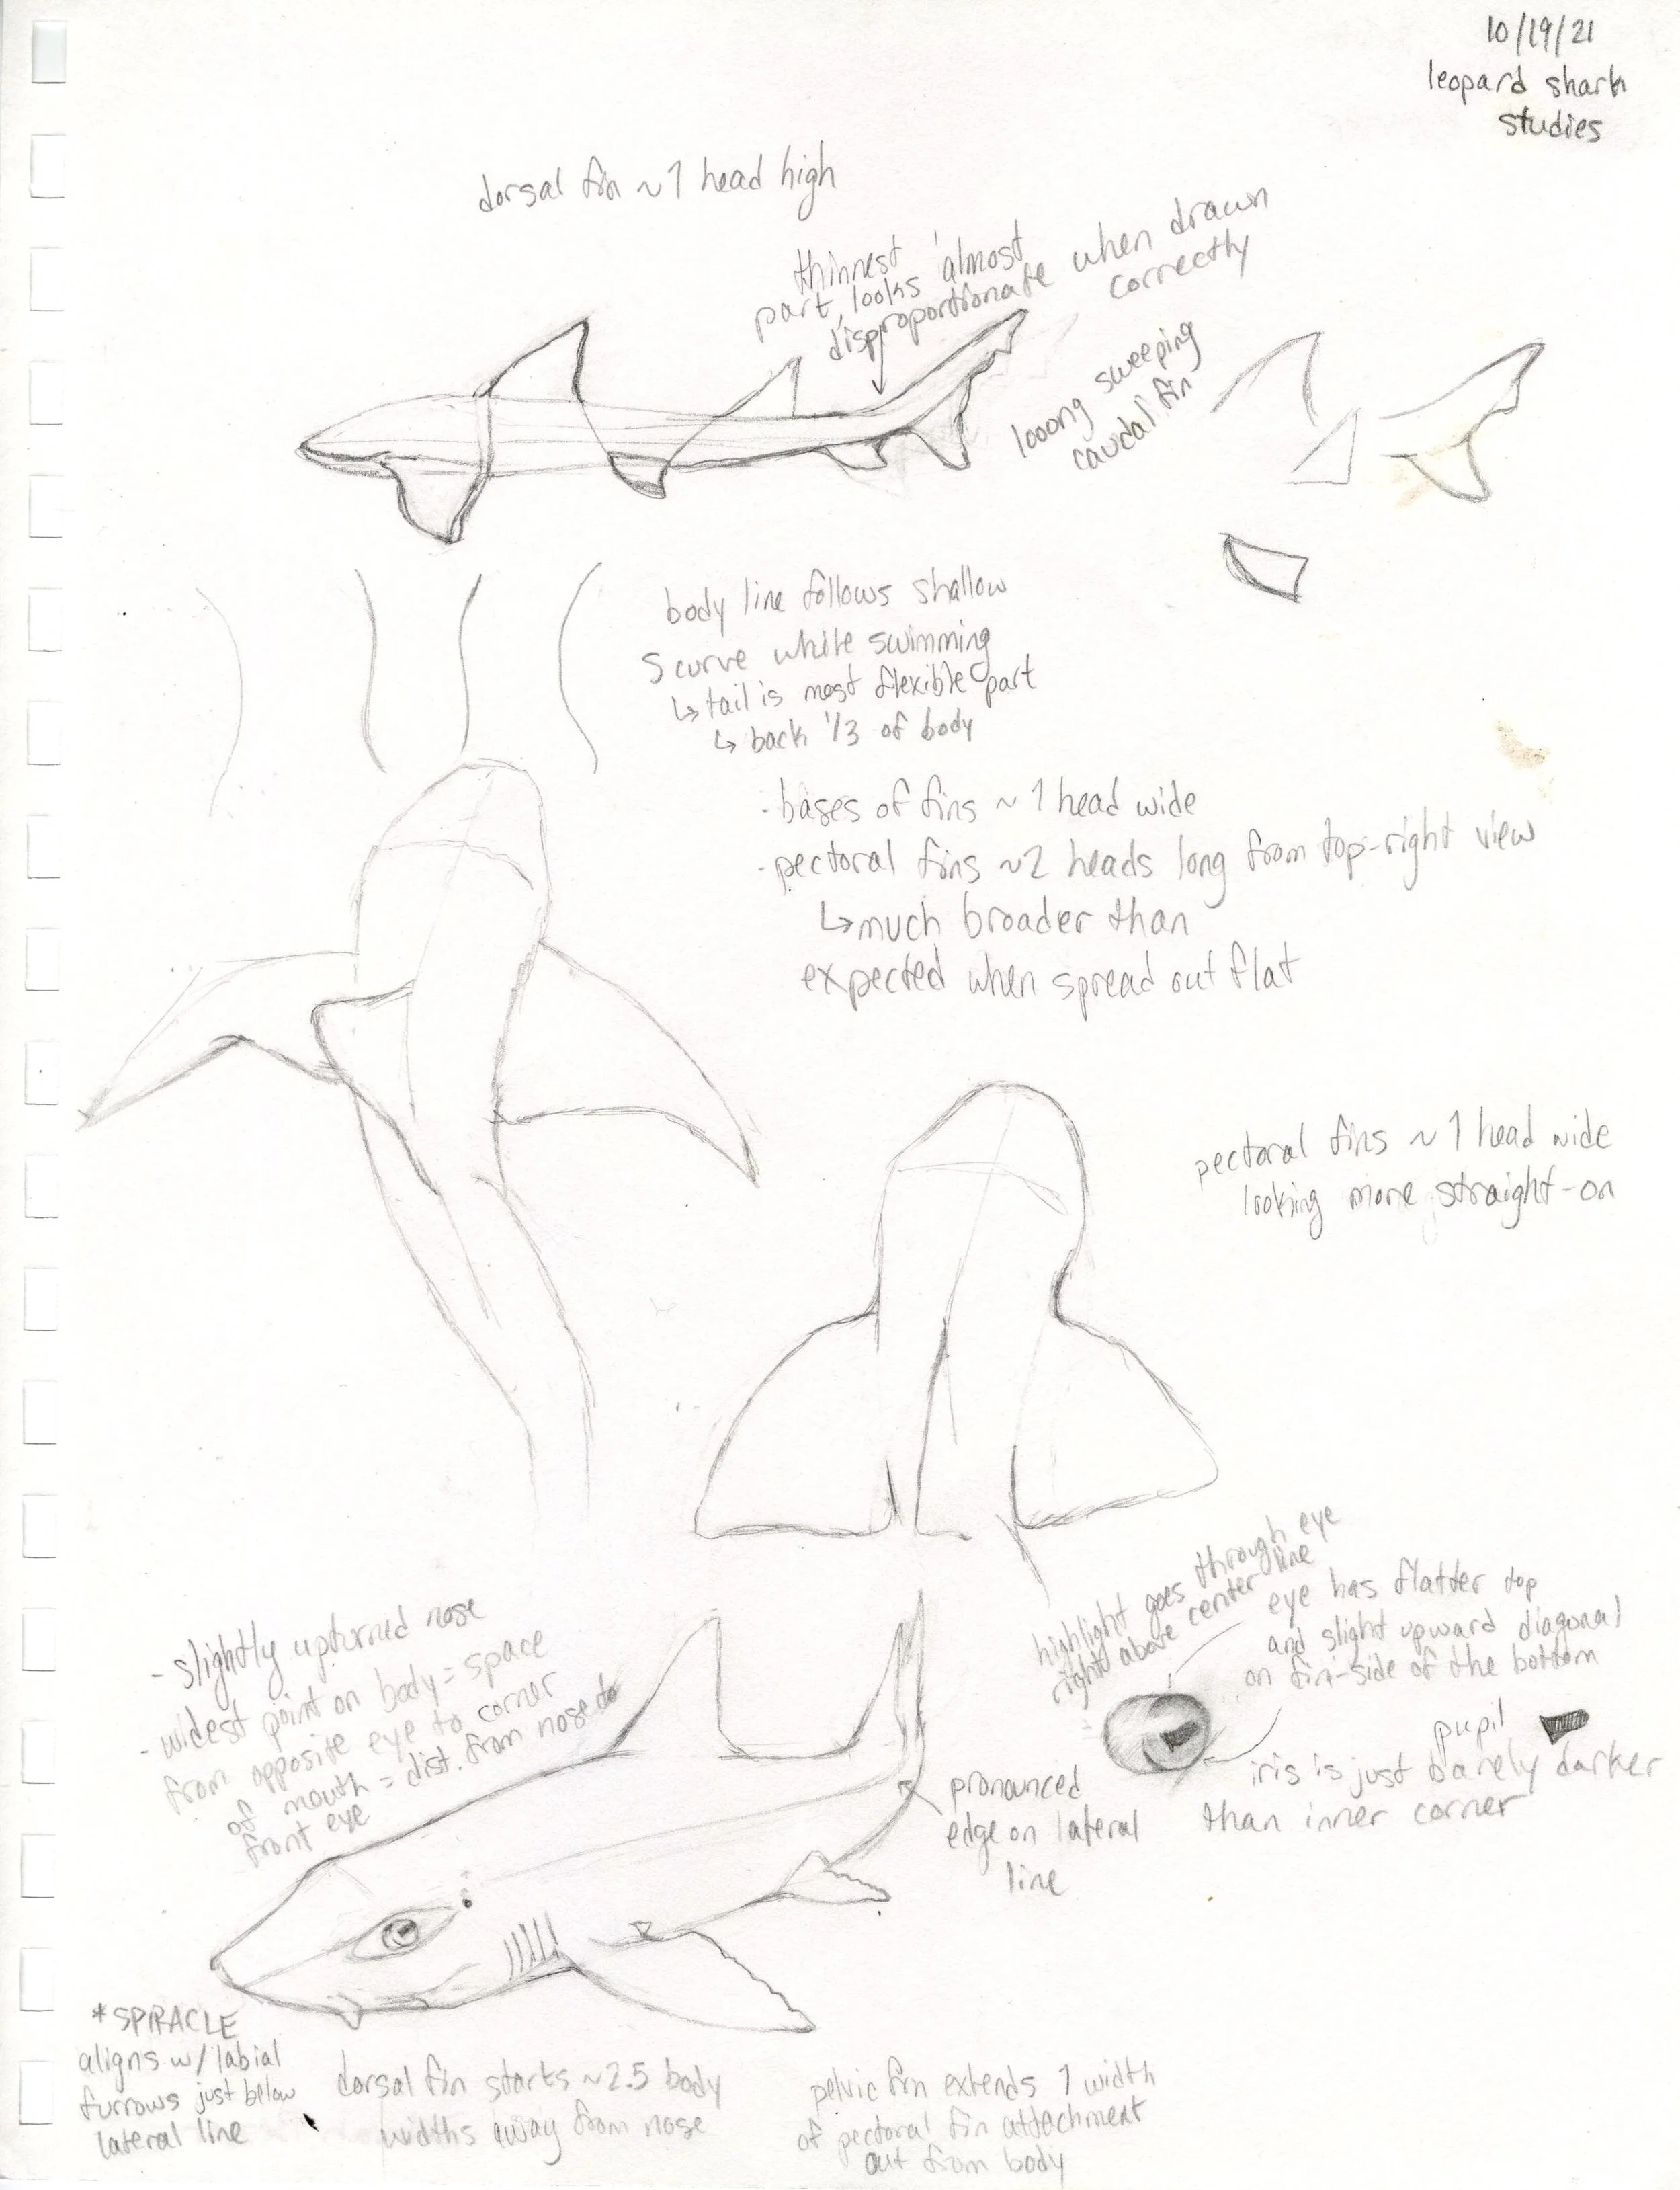 10/19/21
leopard shark
studies
dorsal fin ~1 head high
thinnest
part, looks almost
disproportionate when drawn
correctly
looong sweeping
caudal fin
body line follows shallow
S curve while swimming
↳ tail is most flexible part
↳ back 1/3 of body
- bases of fins ~ 1 head wide
- pectoral fins ~2 heads long from top-right view
↳ much broader than
expected when spread out flat
pectoral fins ~ 1 head wide
looking more straight-on
highlight goes through eye
right above center line
eye has flatter top
and slight upward diagonal
on fin-side of the bottom
pupil
iris is just barely darker
than inner corner
- slightly upturned nose
- widest point on body = space
from opposite eye to corner
of mouth = dist. from nose to
front eye
pronounced
edge on lateral
line
*SPIRACLE
aligns w/ labial
furrows just below
lateral line
dorsal fin starts ~2.5 body
widths away from nose
pelvic fin extends 1 width
of pectoral fin attachment
out from body